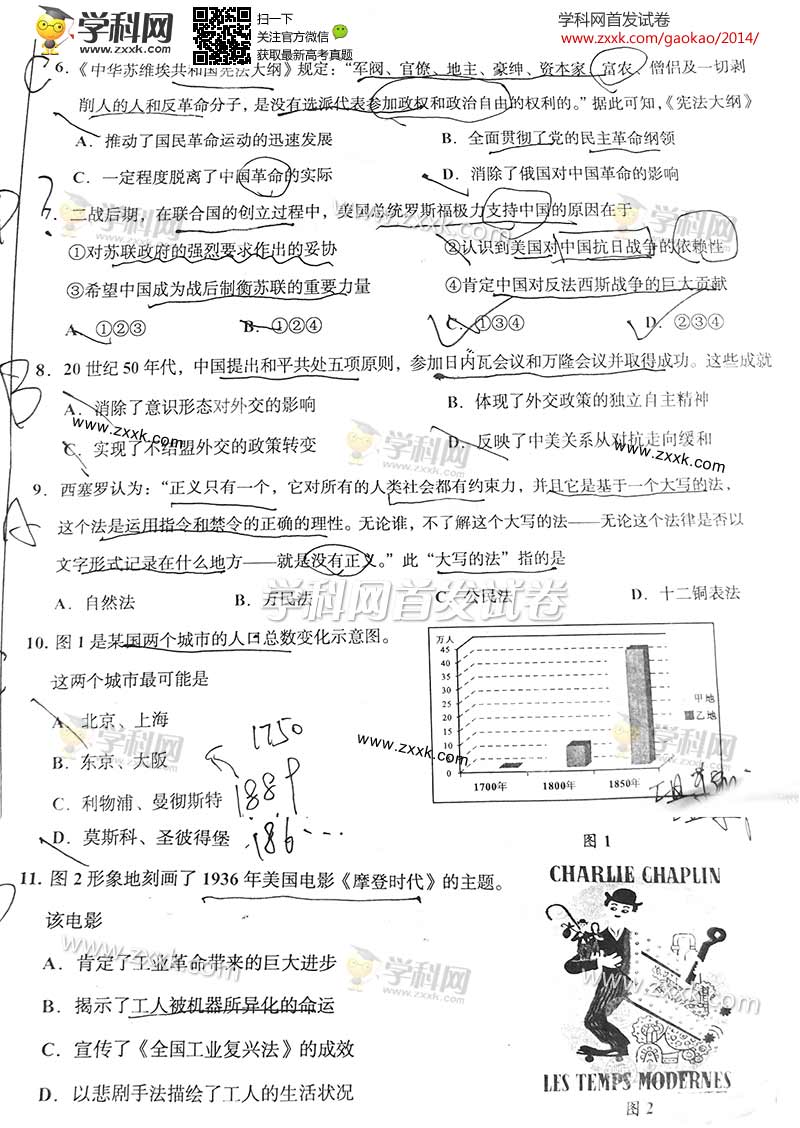 学科网
www.zxxk.com
扫一下
关注官方微信
获取最新高考真题
学科网首发试卷
www.zxxk.com/gaokao/2014/
6.《中华苏维埃共和国宪法大纲》规定：“军阀、官僚、地主、豪绅、资本家、富农、僧侣及一切剥
削人的人和反革命分子，是没有选派代表参加政权和政治自由的权利的。”据此可知，《宪法大纲》
A．推动了国民革命运动的迅速发展
B．全面贯彻了党的民主革命纲领
C．一定程度脱离了中国革命的实际
D．消除了俄国对中国革命的影响
7．二战后期，在联合国的创立过程中，美国总统罗斯福极力支持中国的原因在于
①对苏联政府的强烈要求作出的妥协
②认识到美国对中国抗日战争的依赖性
③希望中国成为战后制衡苏联的重要力量
④肯定中国对反法西斯战争的巨大贡献
A．①②③
B．①②④
C．①③④
D．②③④
8．20世纪50年代，中国提出和平共处五项原则，参加日内瓦会议和万隆会议并取得成功。这些成就
A．消除了意识形态对外交的影响
B．体现了外交政策的独立自主精神
C．实现了不结盟外交的政策转变
D．反映了中美关系从对抗走向缓和
B
9．西塞罗认为：“正义只有一个，它对所有的人类社会都有约束力，并且它是基于一个大写的法，
这个法是运用指令和禁令的正确的理性。无论谁，不了解这个大写的法——无论这个法律是否以
文字形式记录在什么地方——就是没有正义。”此“大写的法”指的是
A
学科网首发试卷
A．自然法
B．万民法
C．公民法
D．十二铜表法
10．图1是某国两个城市的人口总数变化示意图。
这两个城市最可能是
A．北京、上海
B．东京、大阪
C．利物浦、曼彻斯特
D．莫斯科、圣彼得堡
1750
1889
186
万人
45
40
35
30
25
20
15
10
5
0
1700年
1800年
1850年
甲地
乙地
图 1
11．图2形象地刻画了1936年美国电影《摩登时代》的主题。
该电影
A．肯定了工业革命带来的巨大进步
B．揭示了工人被机器所异化的命运
C．宣传了《全国工业复兴法》的成效
D．以悲剧手法描绘了工人的生活状况
CHARLIE CHAPLIN
LES TEMPS MODERNES
图 2